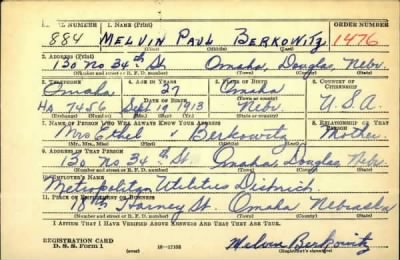 SERIAL NUMBER 1. NAME (Print) ORDER NUMBER
884 MELVIN PAUL BERKOWITZ 1476
(First) (Middle) (Last)
2. ADDRESS (Print)
130 No 34th St. Omaha, Douglas, Nebr.
(Number and street or R. F. D. number) (Town) (County) (State)
3. TELEPHONE 4. AGE IN YEARS 5. PLACE OF BIRTH 6. COUNTRY OF CITIZENSHIP
Omaha 27 Omaha
DATE OF BIRTH (Town or county)
HA 7456 Sept 19 1913 Nebr. U.S.A.
(Exchange) (Number) (Mo.) (Day) (Yr.) (State or country)
7. NAME OF PERSON WHO WILL ALWAYS KNOW YOUR ADDRESS 8. RELATIONSHIP OF THAT PERSON
Mrs Ethel Berkowitz Mother
(Mr., Mrs., Miss) (First) (Middle) (Last)
9. ADDRESS OF THAT PERSON
130 No 34th St. Omaha, Douglas Nebr.
(Number and street or R. F. D. number) (Town) (County) (State)
10. EMPLOYER'S NAME
Metropolitan Utilities District.
11. PLACE OF EMPLOYMENT OR BUSINESS
18th Harney St. Omaha Nebraska
(Number and street or R. F. D. number) (Town) (County) (State)
I AFFIRM THAT I HAVE VERIFIED ABOVE ANSWERS AND THAT THEY ARE TRUE.
REGISTRATION CARD
D. S. S. Form 1 16-17105 Melvin Berkowitz
(Registrant's signature)